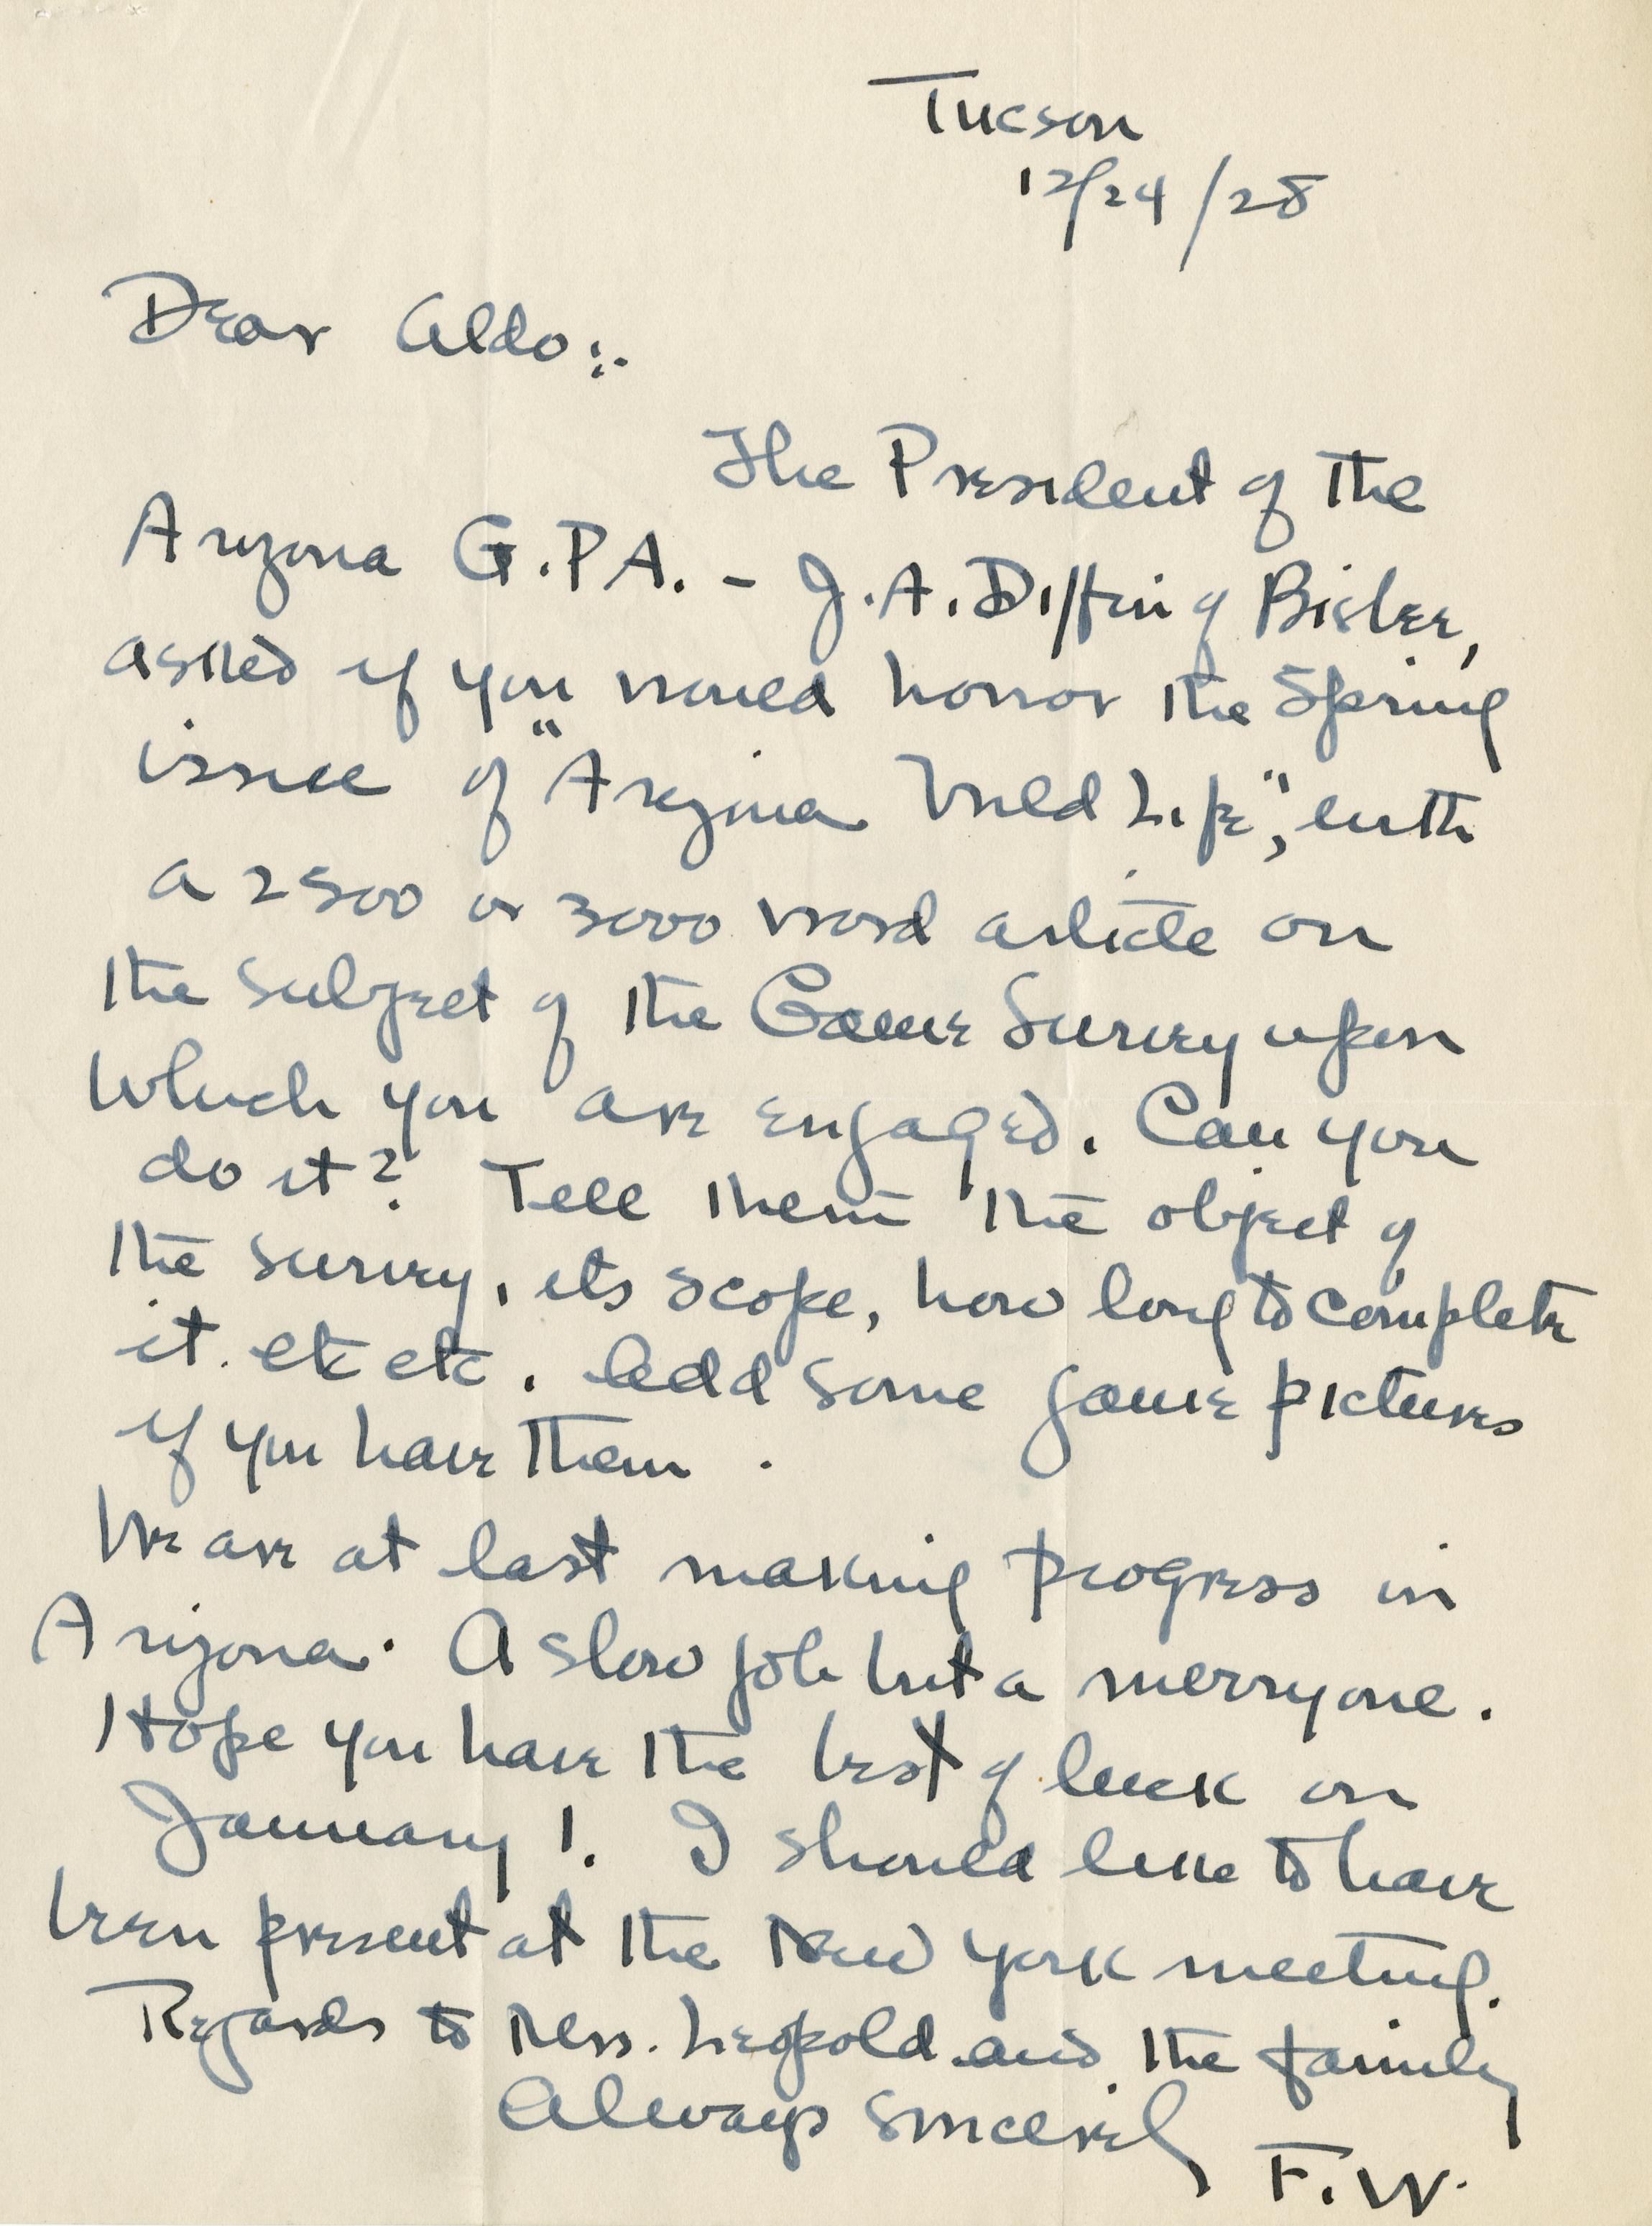 Tucson
12/24/28
Dear Aldo:.
The President of the
Arizona G.P.A. - J.A. Diffin of Bisbee,
asked if you would honor the Spring
issue of "Arizona Wild Life", with
a 2500 or 3000 word article on
the subject of the Game Survey upon
which you are engaged. Can you
do it? Tell them the object of
the survey, its scope, how long to complete
it. etc etc. Add some game pictures
if you have them.
We are at last making progress in
Arizona. A slow job but a merry one.
Hope you have the best of luck on
January 1. I should like to have
been present at the New York meeting.
Regards to Mrs. Leopold and the family
Always sincerely
F.W.